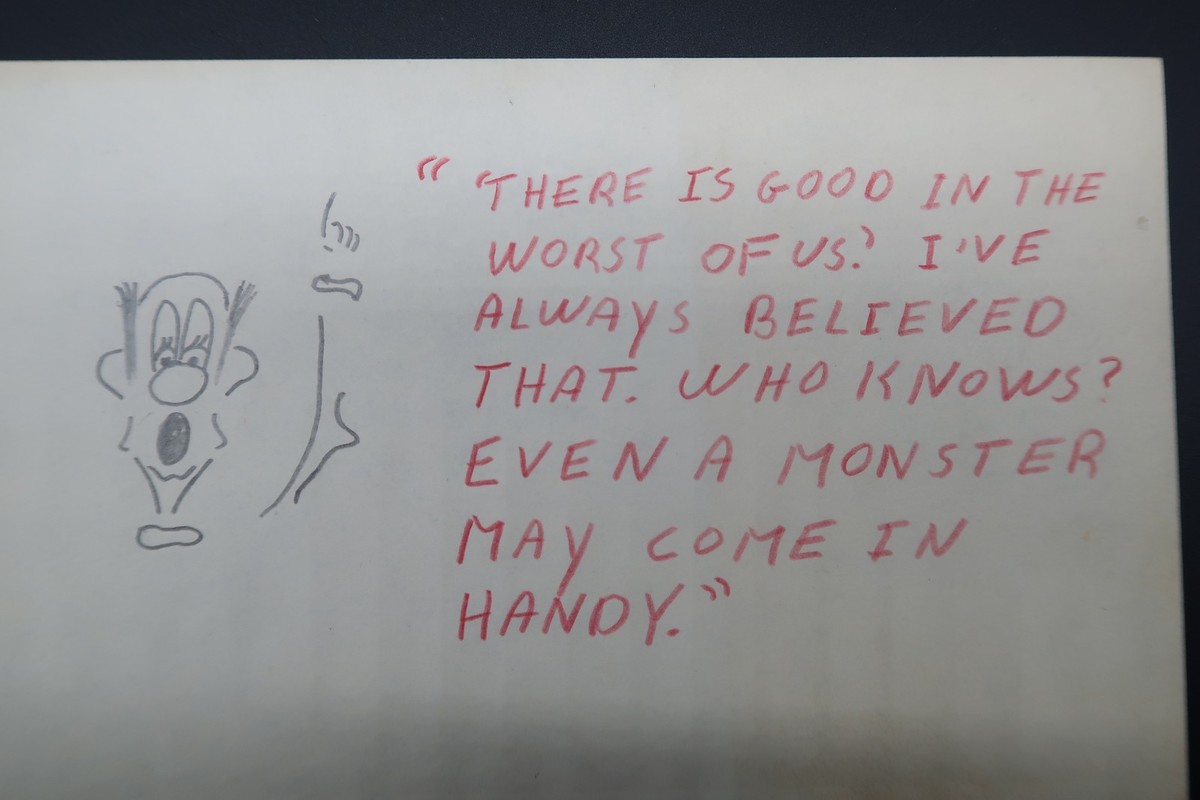 “ ‘THERE IS GOOD IN THE
WORST OF US.’ I'VE
ALWAYS BELIEVED
THAT. WHO KNOWS?
EVEN A MONSTER
MAY COME IN
HANDY.”